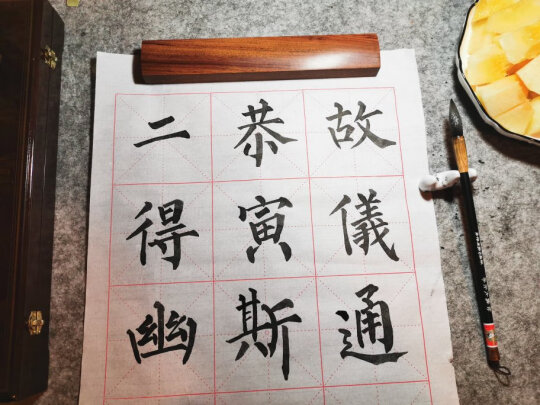 故儀通
恭寅斯
二得幽